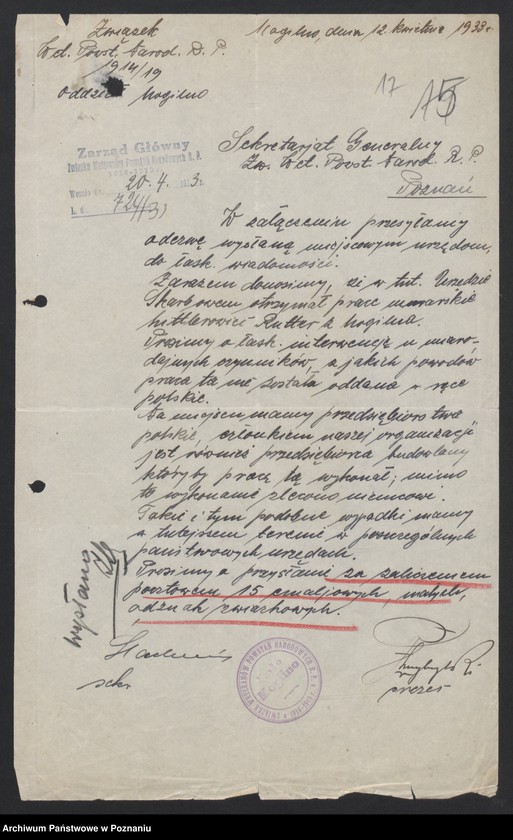 Związek
Wet. Powst. Narod. R. P.
1914/19
Oddział Mogilno
Mogilno, dnia 12. kwietnia 1933 r.
17
15
Zarząd Główny
Związku Weteranów Powstań Narodowych R. P.
20. 4. 33 r.
L. d. 724/33
Sekretarjat Generalny
Zw. Wet. Powst. Narod. R. P.
Poznań
W załączeniu przesyłamy
odezwę wysłaną miejscowym urzędom,
do łask. wiadomości.
Zarazem donosimy, że w tut. Urzędzie
Skarbowem otrzymał prace murarskie
hittlerowiec Rutter z Mogilna.
Prosimy o łask. interwencję u miaro-
dajnych czynników, z jakich powodów
praca ta nie została oddana w ręce
polskie.
Na miejscu mamy przedsiębiorstwa
polskie, członkiem naszej organizacji
jest również przedsiębiorca budowlany
któryby pracę tą wykonał; mimo
to wykonanie zlecono niemcowi.
Takie i tym podobne wypadki mamy
w tutejszem terenie w poszczególnych
państwowych urzędach.
Prosimy o przysłanie za zaliczeniem
pocztowem 15 emaljowych, małych,
odznak związkowych.
wysłano
sekr.
prezes
ZWIĄZEK WETERANÓW POWSTAŃ NARODOWYCH R. P.
Mogilno
Archiwum Państwowe w Poznaniu